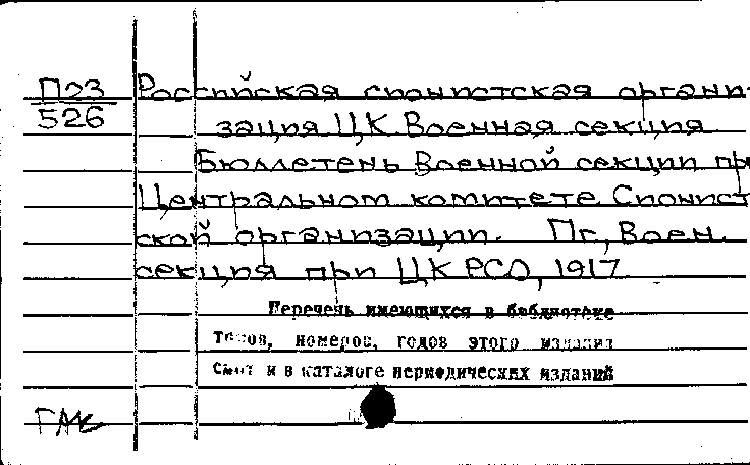 П23 Российская сионистская органи-
526 зация ЦК Военная секция
Бюллетень Военной секции при
Центральном комитете Сионист
ской организации. Пг, Воен.
секция при ЦК РСО, 1917
Перечень имеющихся в библиотеке
томов, номеров, годов этого издания
Смот и в каталоге периодических изданий
ГАК